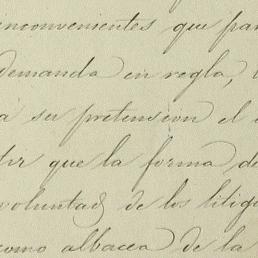 inconvenientes que par
demanda en regla,
a ser pretension el
dir que la forma de
voluntad de los litig
como albacea de la